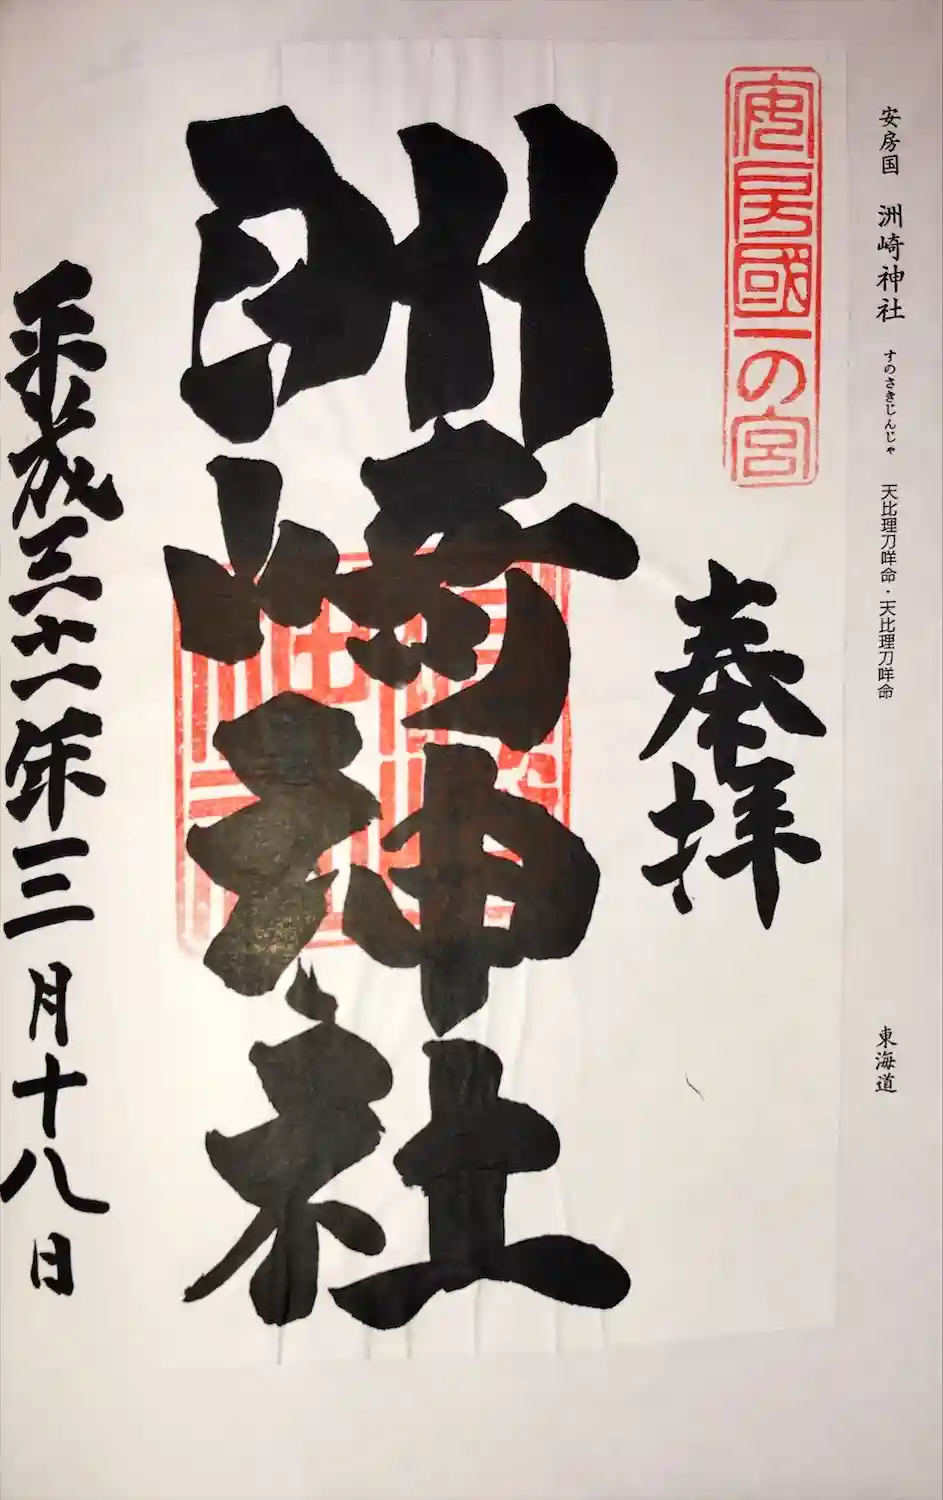 安房国 洲崎神社 すのさきじんじゃ 天比理刀咩命・天比理刀咩命 東海道
安房國一の宮
奉拝
洲崎神社
平成三十一年三月十八日